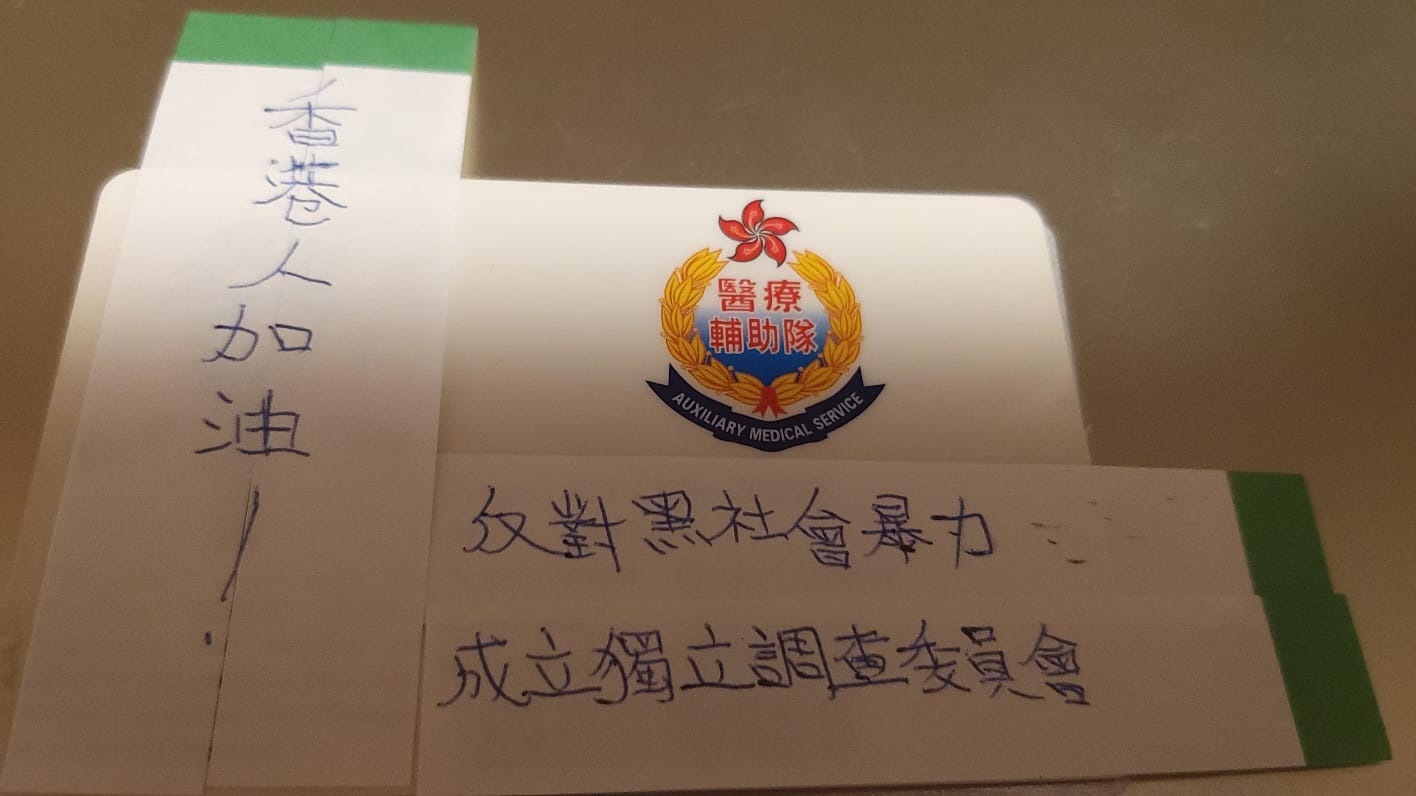 香港人加油!
醫療
輔助隊
AUXILIARY MEDICAL SERVICE
反對黑社會暴力
成立獨立調查委員會